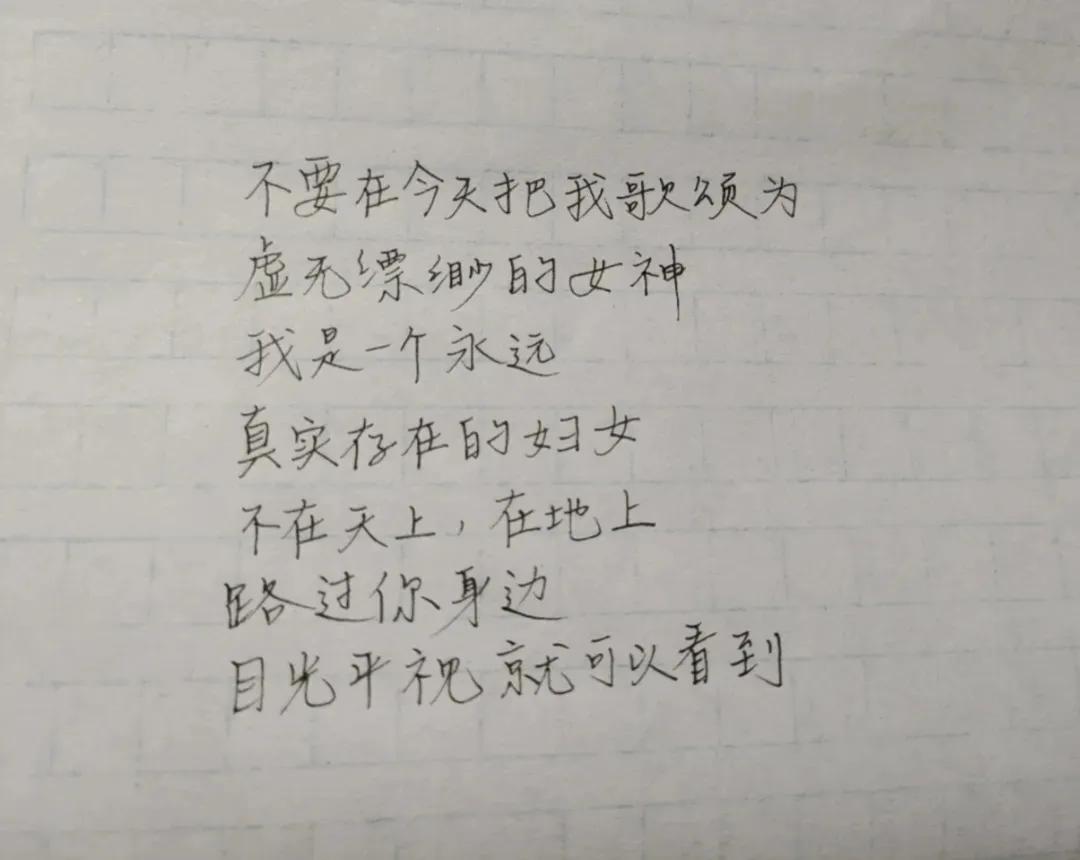 不要在今天把我歌颂为
虚无缥缈的女神
我是一个永远
真实存在的妇女
不在天上，在地上
路过你身边
目光平视就可以看到